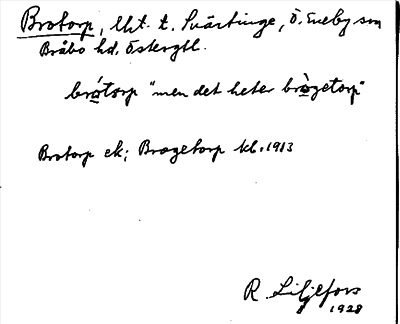 Brotorp, lht. t. Svärtinge, Ö. Eneby sn
Bråbo hd. Östergtl.
brótorp "men det heter brògetorp"
Brotorp ek; Brogetorp kb. 1913
R. Liljefors
1928